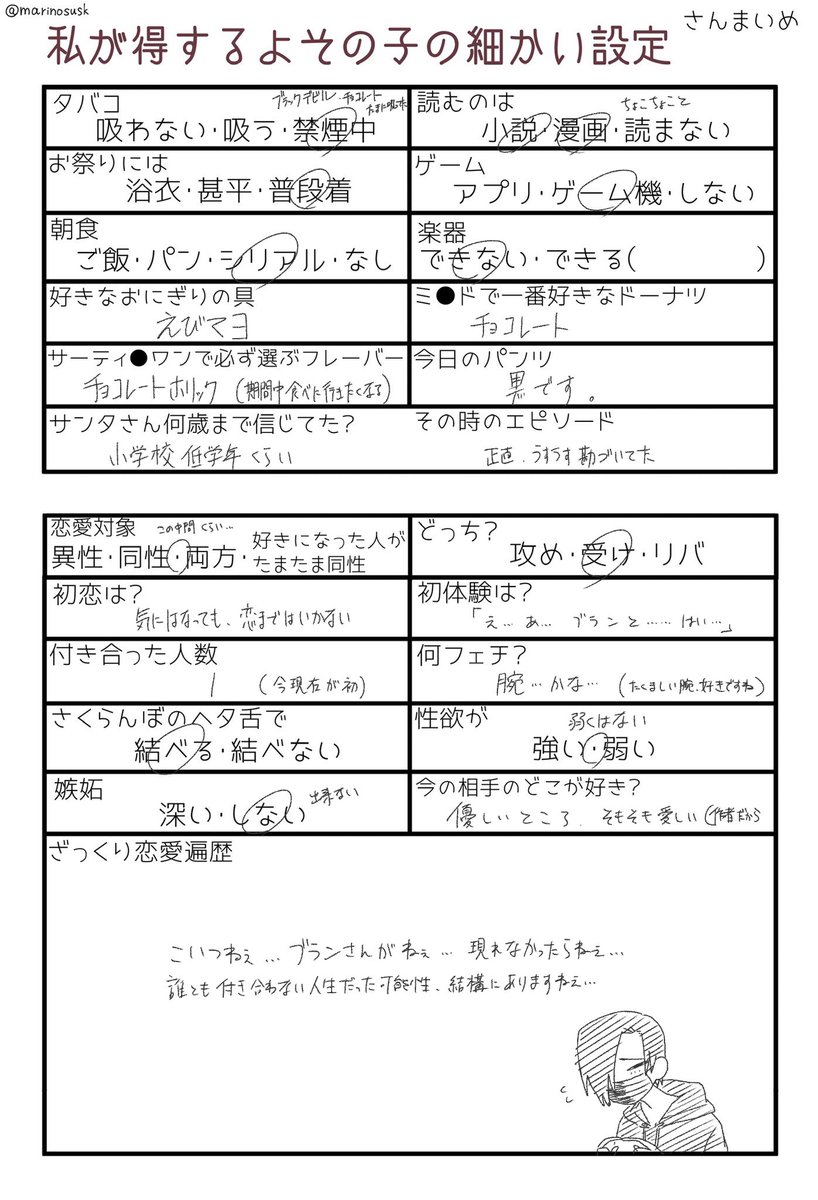 @marinosusk
私が得するよその子の細かい設定
さんまいめ
タバコ
ブラックデビル、チョコレート
たまに吸った
吸わない・吸う・禁煙中
読むのは
ちょこちょこと
小説・漫画・読まない
お祭りには
浴衣・甚平・普段着
ゲーム
アプリ・ゲーム機・しない
朝食
ご飯・パン・シリアル・なし
楽器
できない・できる( )
好きなおにぎりの具
えびマヨ
ミ●ドで一番好きなドーナツ
チョコレート
サーティ●ワンで必ず選ぶフレーバー
チョコレートホリック (期間中食べに行きたくなる)
今日のパンツ
黒です。
サンタさん何歳まで信じてた?
小学校低学年くらい
その時のエピソード
正直、うすうす勘づいてた
恋愛対象
この中間くらい…
異性・同性・両方・好きになった人が
たまたま同性
どっち?
攻め・受け・リバ
初恋は?
気にはなっても、恋まではいかない
初体験は?
「え…あ… ブランと……はい…」
付き合った人数
1 (今現在が初)
何フェチ?
腕…かな… (たくましい腕、好きですね)
さくらんぼのヘタ舌で
結べる・結べない
性欲が
弱くはない
強い・弱い
嫉妬
出来ない
深い・しない
今の相手のどこが好き?
優しいところ、そもそも愛しい
ざっくり恋愛遍歴
こいつねぇ…ブランさんがねぇ…現れなかったらねぇ…
誰とも付き合わない人生だった可能性、結構にありますねぇ…